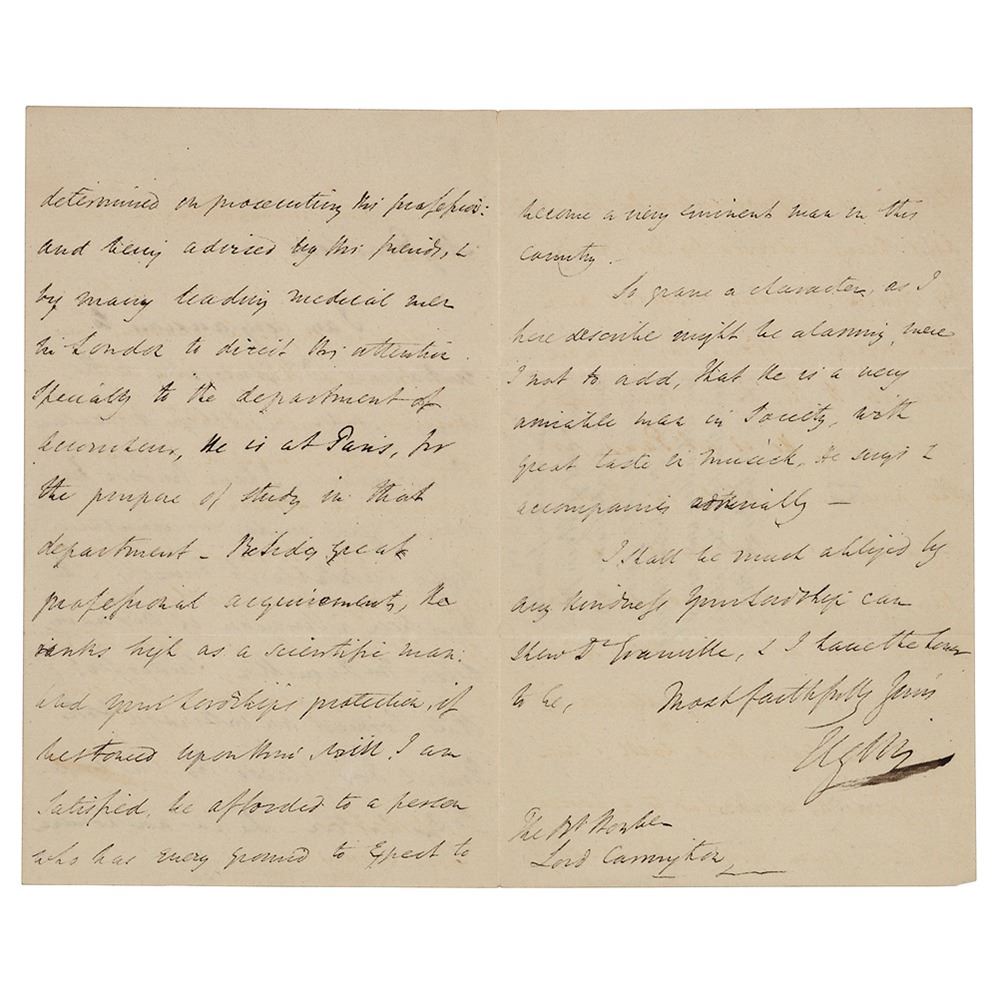 determined on prosecuting his profession:
and being advised by his friends, &
by many leading medical men
in London to direct his attention
specially to the department of
accoucheur, he is at Paris, for
the purpose of study in that
department - Besides great
professional acquirements, he
ranks high as a scientific man:
And your Lordship's protection, if
bestowed upon him will I am
satisfied, be afforded to a person
who has every ground to expect to
become a very eminent man in this
country.
So grave a character, as I
here describe might be alarming, were
I not to add, that he is a very
amiable man in Society, with
great taste in musick. He sings &
accompanies admirably —
I shall be much obliged by
any kindness your Lordship can
shew Dr Granville, & I have the honor
to be, Most faithfully Yours
Elgin
The Rt Honble
Lord Carrington